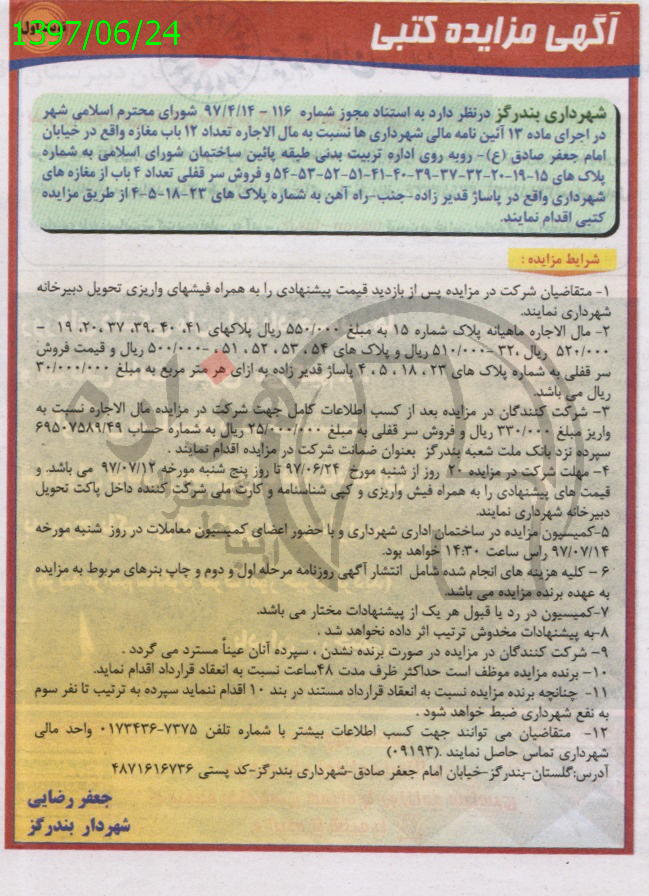 1397/06/24
آگهی مزایده کتبی
شهرداری بندرگز درنظر دارد به استناد مجوز شماره ۱۱۶ - ۹۷/۴/۱۴ شورای محترم اسلامی شهر
در اجرای ماده ۱۳ آئین نامه مالی شهرداری ها نسبت به مال الاجاره تعداد ۱۲ باب مغازه واقع در خیابان
امام جعفر صادق (ع)- روبه روی اداره تربیت بدنی طبقه پائین ساختمان شورای اسلامی به شماره
پلاک های ۱۵-۱۹-۲۰-۳۲-۳۷-۳۹-۴۰-۴۱-۵۱-۵۲-۵۳-۵۴ و فروش سر قفلی تعداد ۴ باب از مغازه های
شهرداری واقع در پاساژ قدیر زاده-جنب-راه آهن به شماره پلاک های ۲۳-۱۸-۵-۴ از طریق مزایده
کتبی اقدام نمایند.
شرایط مزایده :
۱- متقاضیان شرکت در مزایده پس از بازدید قیمت پیشنهادی را به همراه فیشهای واریزی تحویل دبیرخانه
شهرداری نمایند.
۲- مال الاجاره ماهیانه پلاک شماره ۱۵ به مبلغ ۵۵۰/۰۰۰ ریال پلاکهای ۴۱، ۴۰، ۳۹، ۳۷، ۲۰، ۱۹ -
۵۲۰/۰۰۰ ریال ،۳۲ -۵۱۰/۰۰۰ ریال و پلاک های ۵۴ ، ۵۳ ، ۵۲ ، ۵۱ ، -۵۰۰/۰۰۰ ریال و قیمت فروش
سر قفلی به شماره پلاک های ۲۳ ، ۱۸ ، ۵ ، ۴ پاساژ قدیر زاده به ازای هر متر مربع به مبلغ ۳۰/۰۰۰/۰۰۰
ریال می باشد.
۳- شرکت کنندگان در مزایده بعد از کسب اطلاعات کامل جهت شرکت در مزایده مال الاجاره نسبت به
واریز مبلغ ۳۳۰/۰۰۰ ریال و فروش سر قفلی به مبلغ ۲۵/۰۰۰/۰۰۰ ریال به شماره حساب ۶۹۵۰۷۵۸۹/۴۹
سپرده نزد بانک ملت شعبه بندرگز بعنوان ضمانت شرکت در مزایده اقدام نمایند .
۴- مهلت شرکت در مزایده ۲۰ روز از شنبه مورخ ۹۷/۰۶/۲۴ تا روز پنج شنبه مورخه ۹۷/۰۷/۱۲ می باشد. و
قیمت های پیشنهادی را به همراه فیش واریزی و کپی شناسنامه و کارت ملی شرکت کننده داخل پاکت تحویل
دبیرخانه شهرداری نمایند.
۵-کمیسیون مزایده در ساختمان اداری شهرداری و با حضور اعضای کمیسیون معاملات در روز شنبه مورخه
۹۷/۰۷/۱۴ راس ساعت ۱۴:۳۰ خواهد بود.
۶ – کلیه هزینه های انجام شده شامل انتشار آگهی روزنامه مرحله اول و دوم و چاپ بنرهای مربوط به مزایده
به عهده برنده مزایده می باشد.
۷-کمیسیون در رد یا قبول هر یک از پیشنهادات مختار می باشد.
۸-به پیشنهادات مخدوش ترتیب اثر داده نخواهد شد .
۹- شرکت کنندگان در مزایده در صورت برنده نشدن ، سپرده آنان عیناً مسترد می گردد .
۱۰- برنده مزایده موظف است حداکثر ظرف مدت ۴۸ساعت نسبت به انعقاد قرارداد اقدام نماید.
۱۱- چنانچه برنده مزایده نسبت به انعقاد قرارداد مستند در بند ۱۰ اقدام ننماید سپرده به ترتیب تا نفر سوم
به نفع شهرداری ضبط خواهد شود .
۱۲- متقاضیان می توانند جهت کسب اطلاعات بیشتر با شماره تلفن ۷۳۷۵-۰۱۷۳۴۳۶ واحد مالی
شهرداری تماس حاصل نمایند .(۰۹۱۹۳)
آدرس:گلستان-بندرگز-خیابان امام جعفر صادق-شهرداری بندرگز-کد پستی ۴۸۷۱۶۱۶۷۳۶
جعفر رضایی
شهردار بندرگز